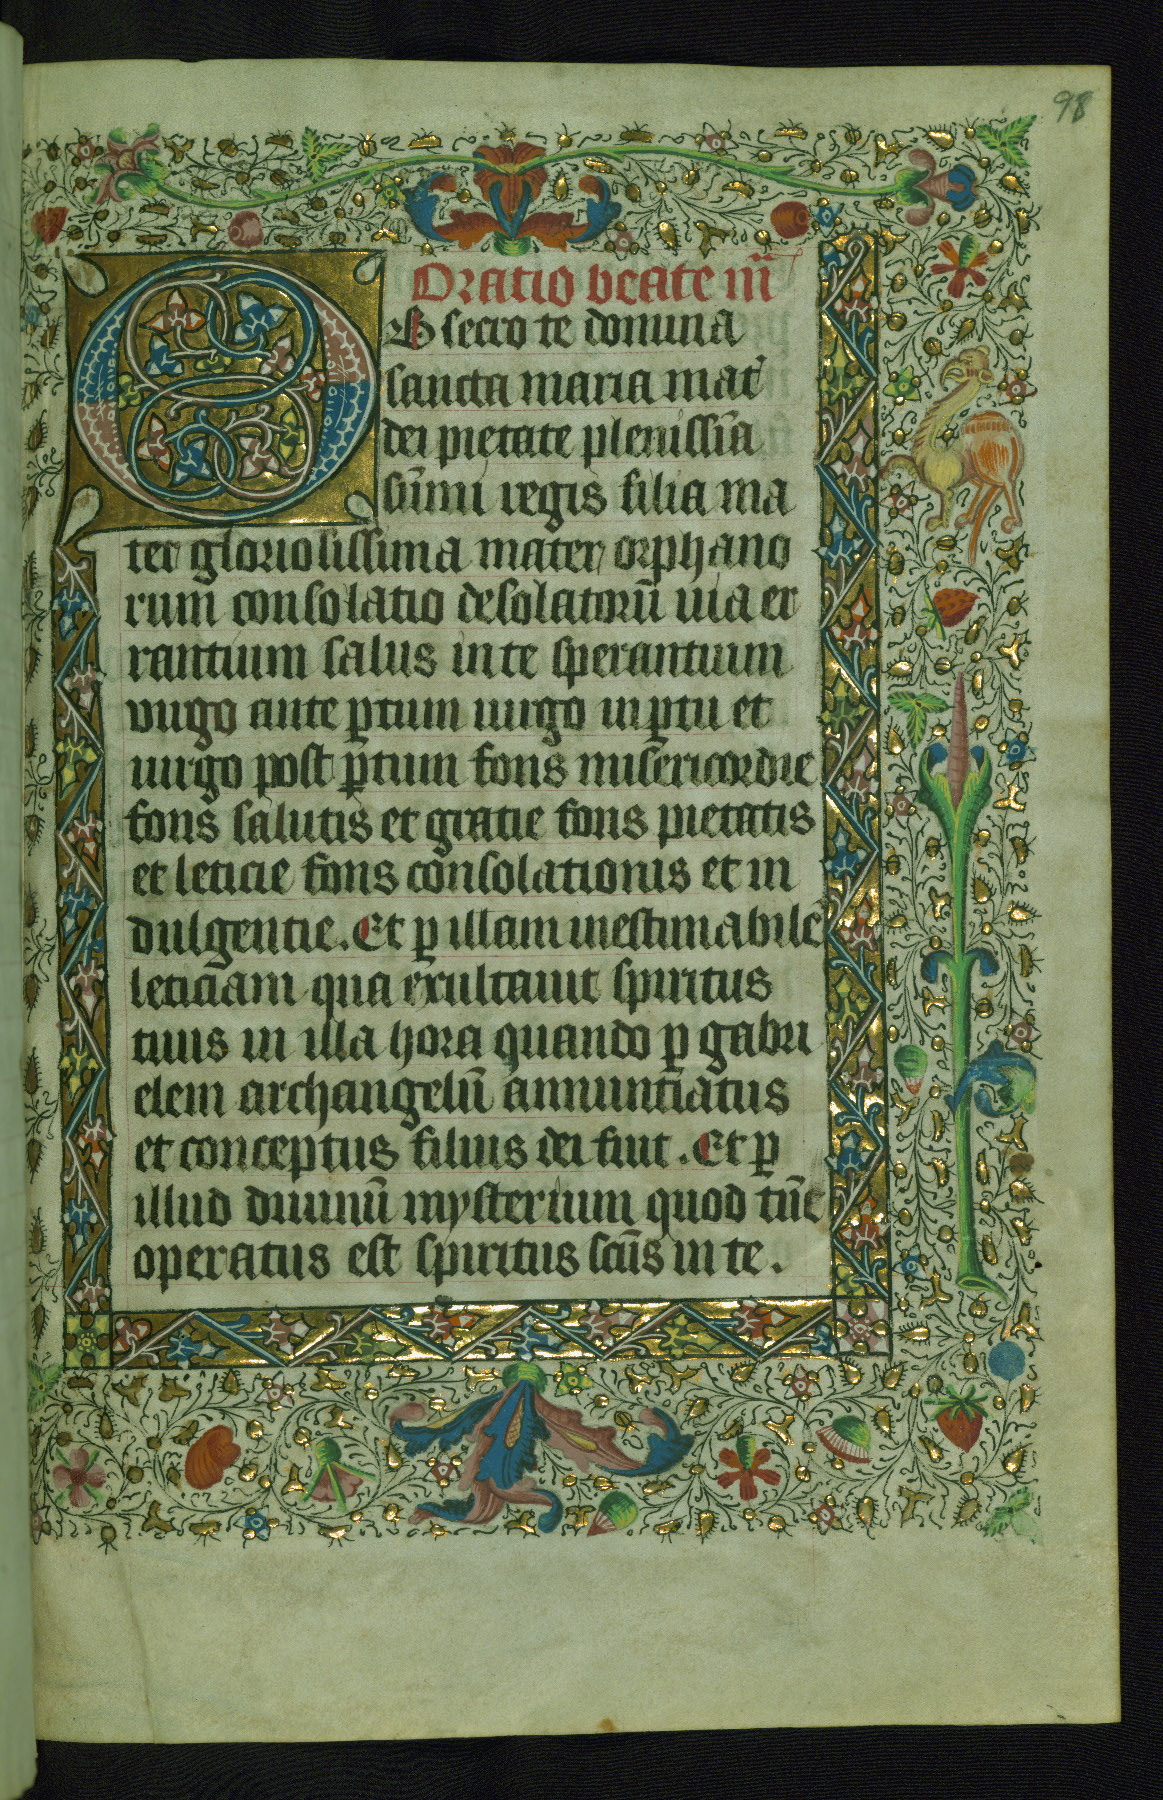 98
Oratio beate m̄
OB secro te domina
sancta maria mat̉
dei pietate plenissīa
sūmi regis filia ma
ter gloriosissima mater orphano
rum consolatio desolatorū uia er
rantium salus in te sperantium
uirgo ante ꝑtum uirgo in ꝑtu et
uirgo post ꝑtum fons misericordie
fons salutis et gratie fons pietatis
et leticie fons consolationis et in
dulgentie. Et ꝑ illam inestimabilē
leticiam qua exultauit spiritus
tuus in illa hora quando ꝑ gabri
elem archangelū annunciatus
et conceptus filius dei fuit. Et ꝑ
illud diuinū mysterium quod tūc
operatus est spiritus scūs in te.